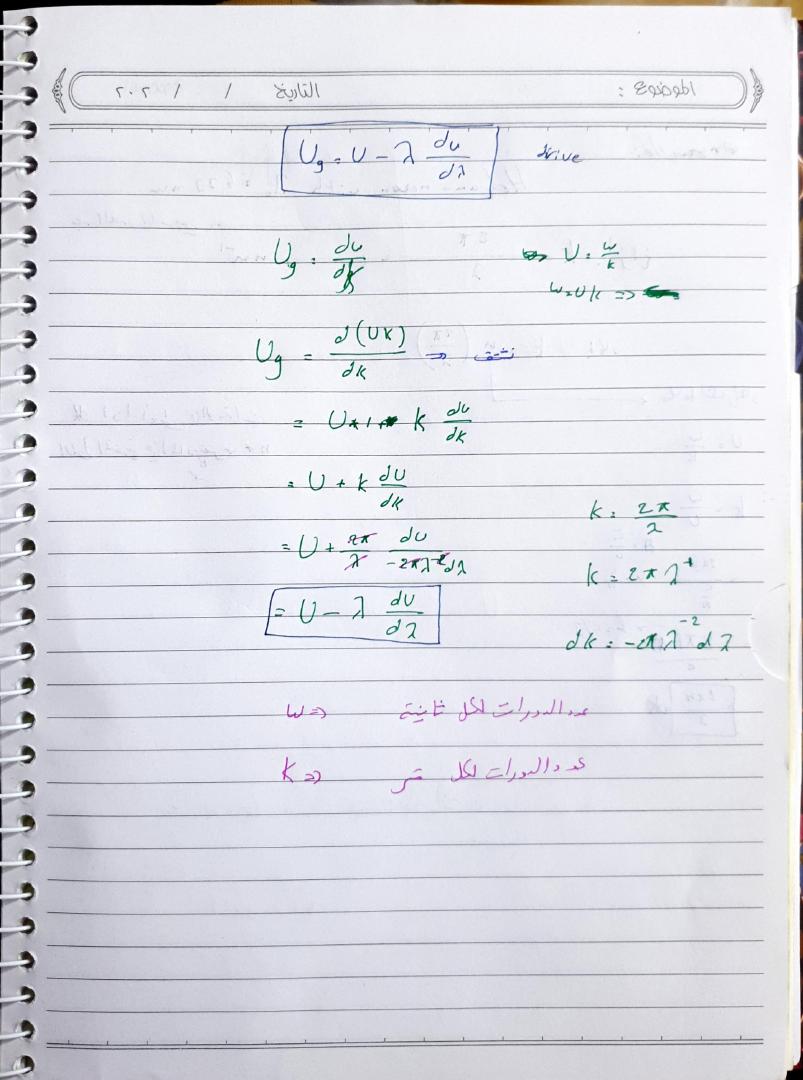 الموضوع : التاريخ / / ٢٠٢
U_g = U - λ du/dλ drive
U_g = du/dk U = w/k
w = Uk =>
U_g = d(UK)/dk => نشتق
= U*1+ k du/dk
= U + k dU/dK
k = 2π/λ
= U + 2π/λ du/-2πλ^-2 dλ
k = 2πλ^-1
= U - λ dU/dλ
dk = -2πλ^-2 dλ
w => عدد الدورات لكل ثانية
K => عدد الدورات لكل متر